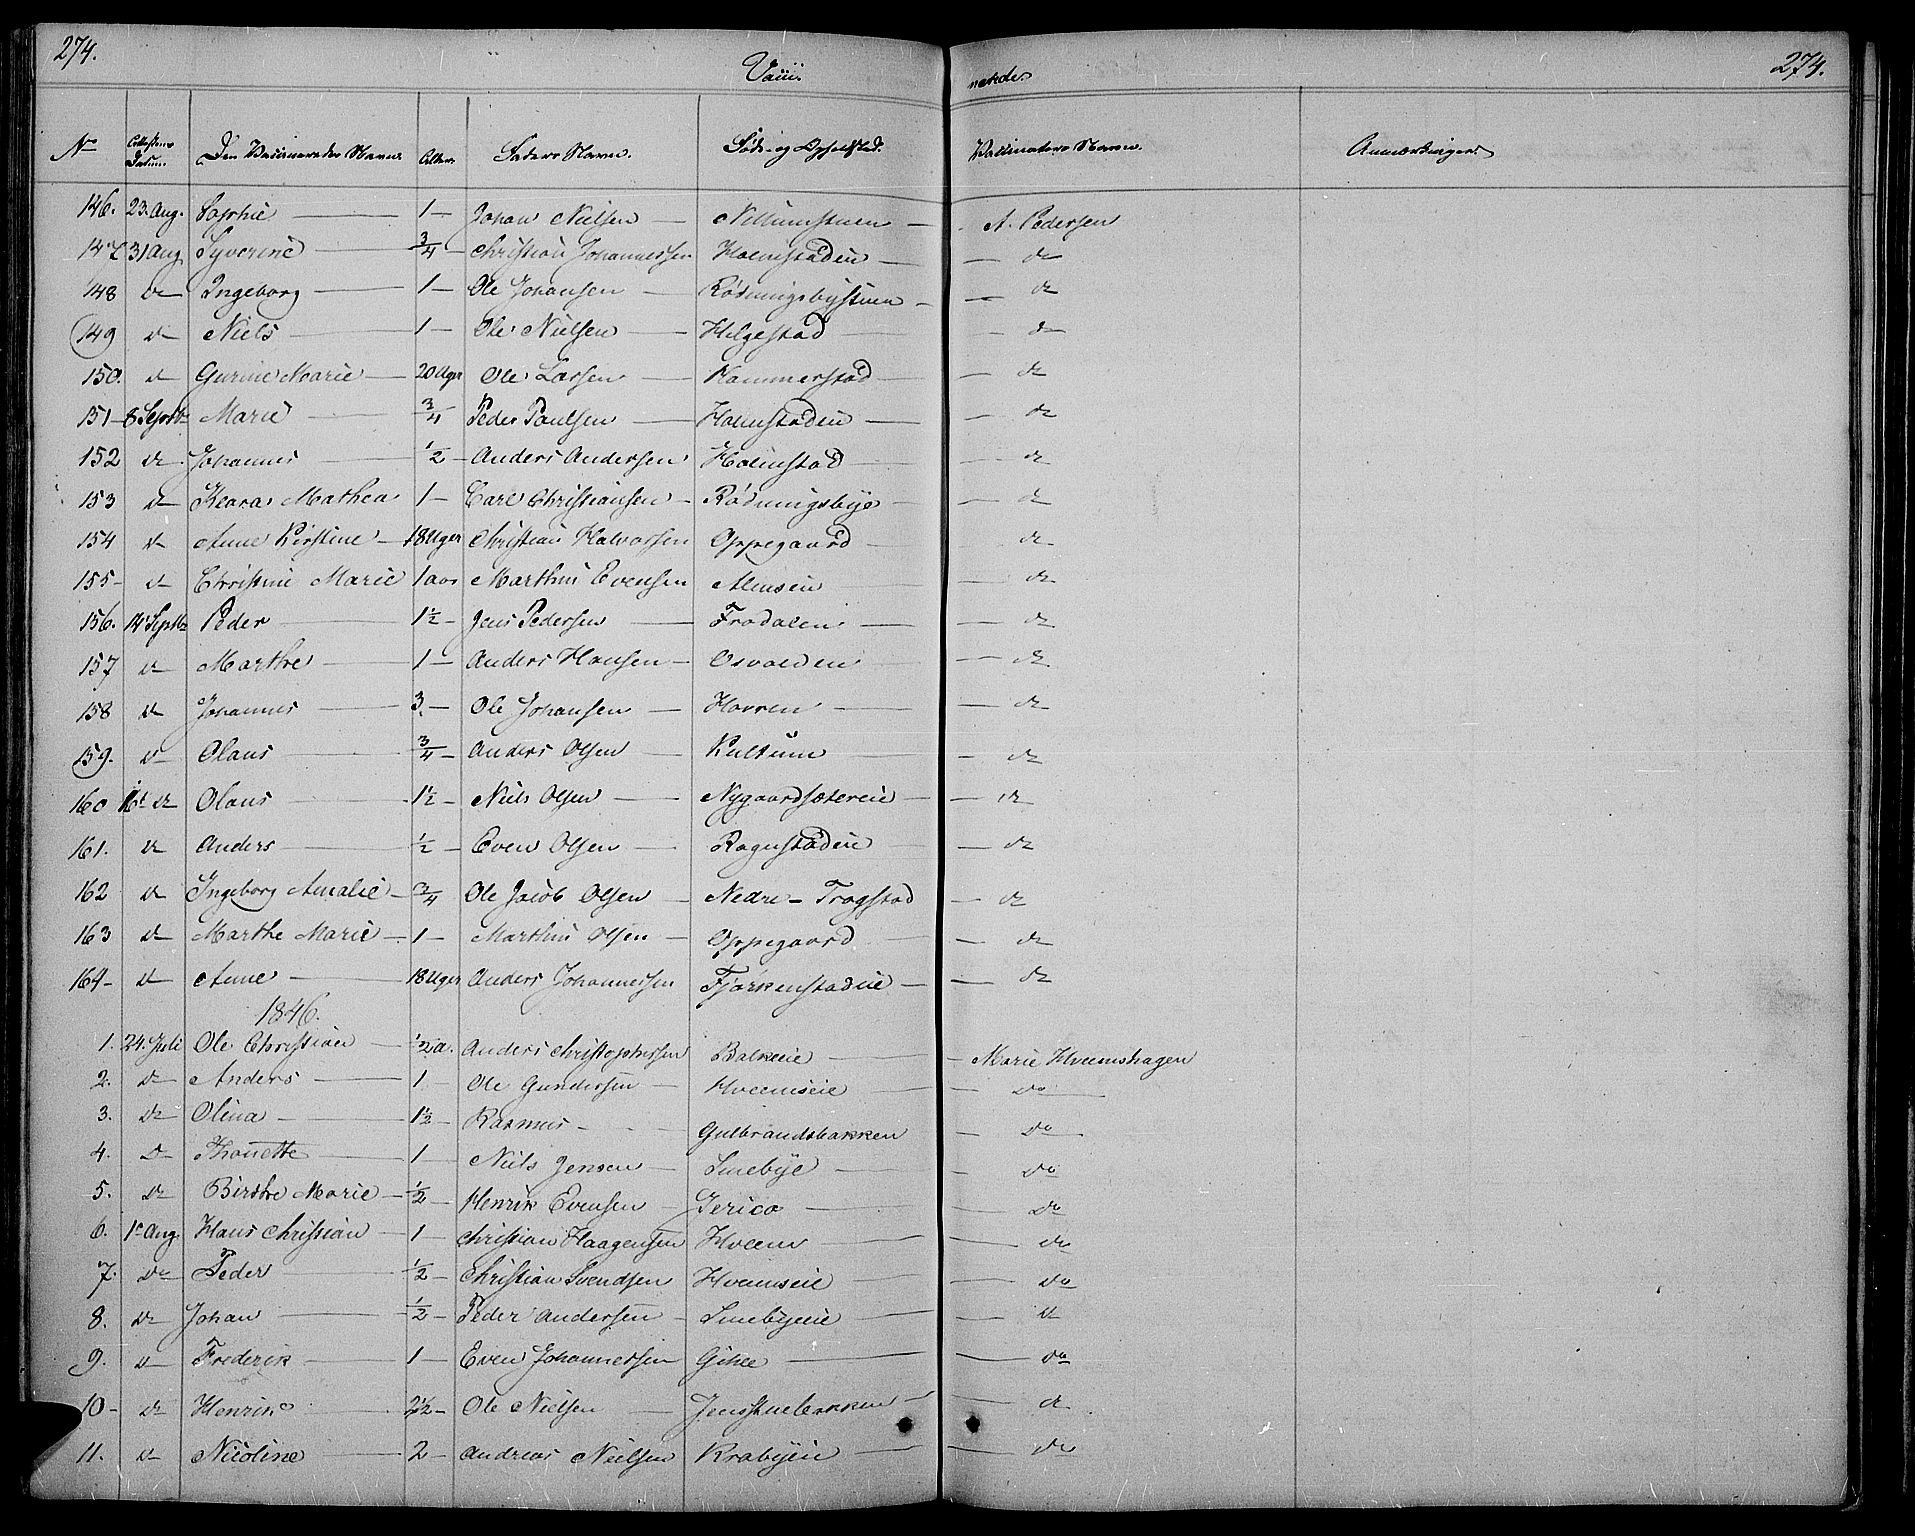 274. 274.
Vaccinerede
No Attestens Datum. Den Vaccineredes Navn. Alder. Faders Navn. Føde- og Opholdsted. Vaccinators Navn. Anmærkninger.
146. 23. Aug. Sophie 1 Johan Nielsen A. Pedersen
147 31 Aug Syverine 3/4 Christian Johannessen Holmstadeie do
148 do Ingeborg 1 Ole Johansen Rødningsbystuen do
149 do Niels 1 Ole Nielsen Helgestad do
150. do Gurine Marie 20 Uger Ole Larsen Hammerstad do
151 8 Septbr Marie 3/4 Peder Paulsen Holmstadeie do
152 do Johannes 1/2 Anders Andersen Holmstad do
153 do Klara Mathea 1 Carl Christiansen Rødningsbye do
154 do Anne Kirstine 18 Uger Christian Halvorsen Oppegaard do
155 do Christine Marie 1 aar Marthin Evensen Almseie do
156. 14 Septbr Peder 1 1/2 Jens Pedersen Frodalen do
157 do Marthe 1 Anders Hansen Osvolden do
158 do Johannes 3. Ole Johansen Horren do
159. do Olaus 3/4 Anders Olsen Kultum do
160 16 do Olaus 1 1/2 Niels Olsen Nygaardsætereie do
161. do Anders 1/2 Even Olsen Rognstadeie do
162 do Ingeborg Amalie 3/4 Ole Jacob Olsen Nedre Trogstad do
163 do Marthe Marie 1 Marthin Olsen Oppegaard do
164 do Anne 18 Uger Anders Johannessen Fjørkenstadeie do
1846.
1. 24. Juli Ole Christian 1/2 a. Anders Christophersen Balkeie Marie Hveemshagen
2. do Anders 1 Ole Gundersen Hveemseie do
3. do Olina 1 1/2 Rasmus Gulbrandsbakken do
4. do Thonette 1 Niels Jensen Smebye do
5. do Birthe Marie 1/2 Henrik Evensen Jerico do
6. 1e Aug Hans Christian 1 Christian Haagensen Hveem do
7. do Peder 1/2 Christian Svendsen Hveemseie do
8. do Johan 1/2 Peder Andersen Smebyeie do
9. do Frederik 1 Even Johannessen Gihle do
10 do Henrik 2 1/2 Ole Nielsen Jensstuebakken do
11. do Nicoline 2 Andreas Nielsen Krabyeie do